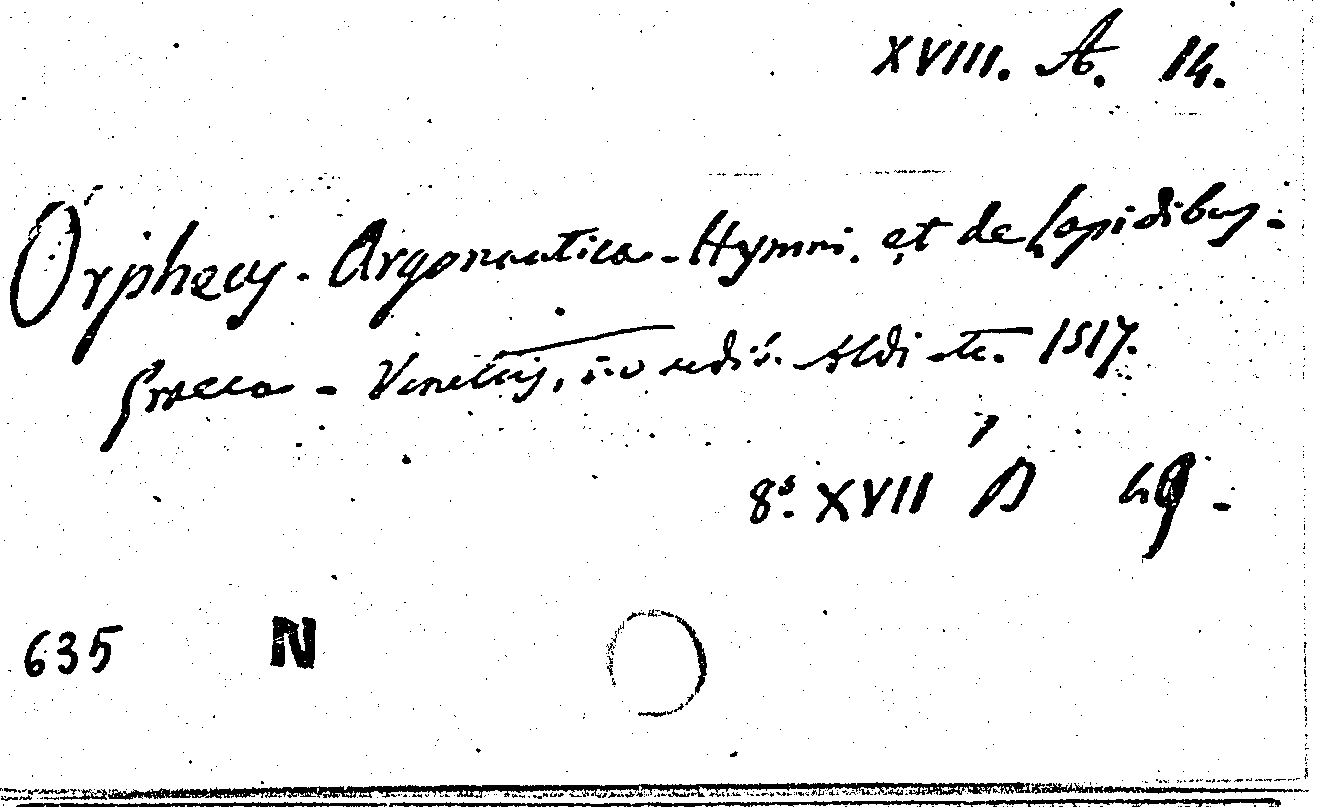 XVIII. A. 14.
Orpheus - Argonautica - Hymni. et de Lapidibus -
Graeca - Venetiis, in aedib. Aldi etc. 1517.
8º XVII B 49 -
635 N